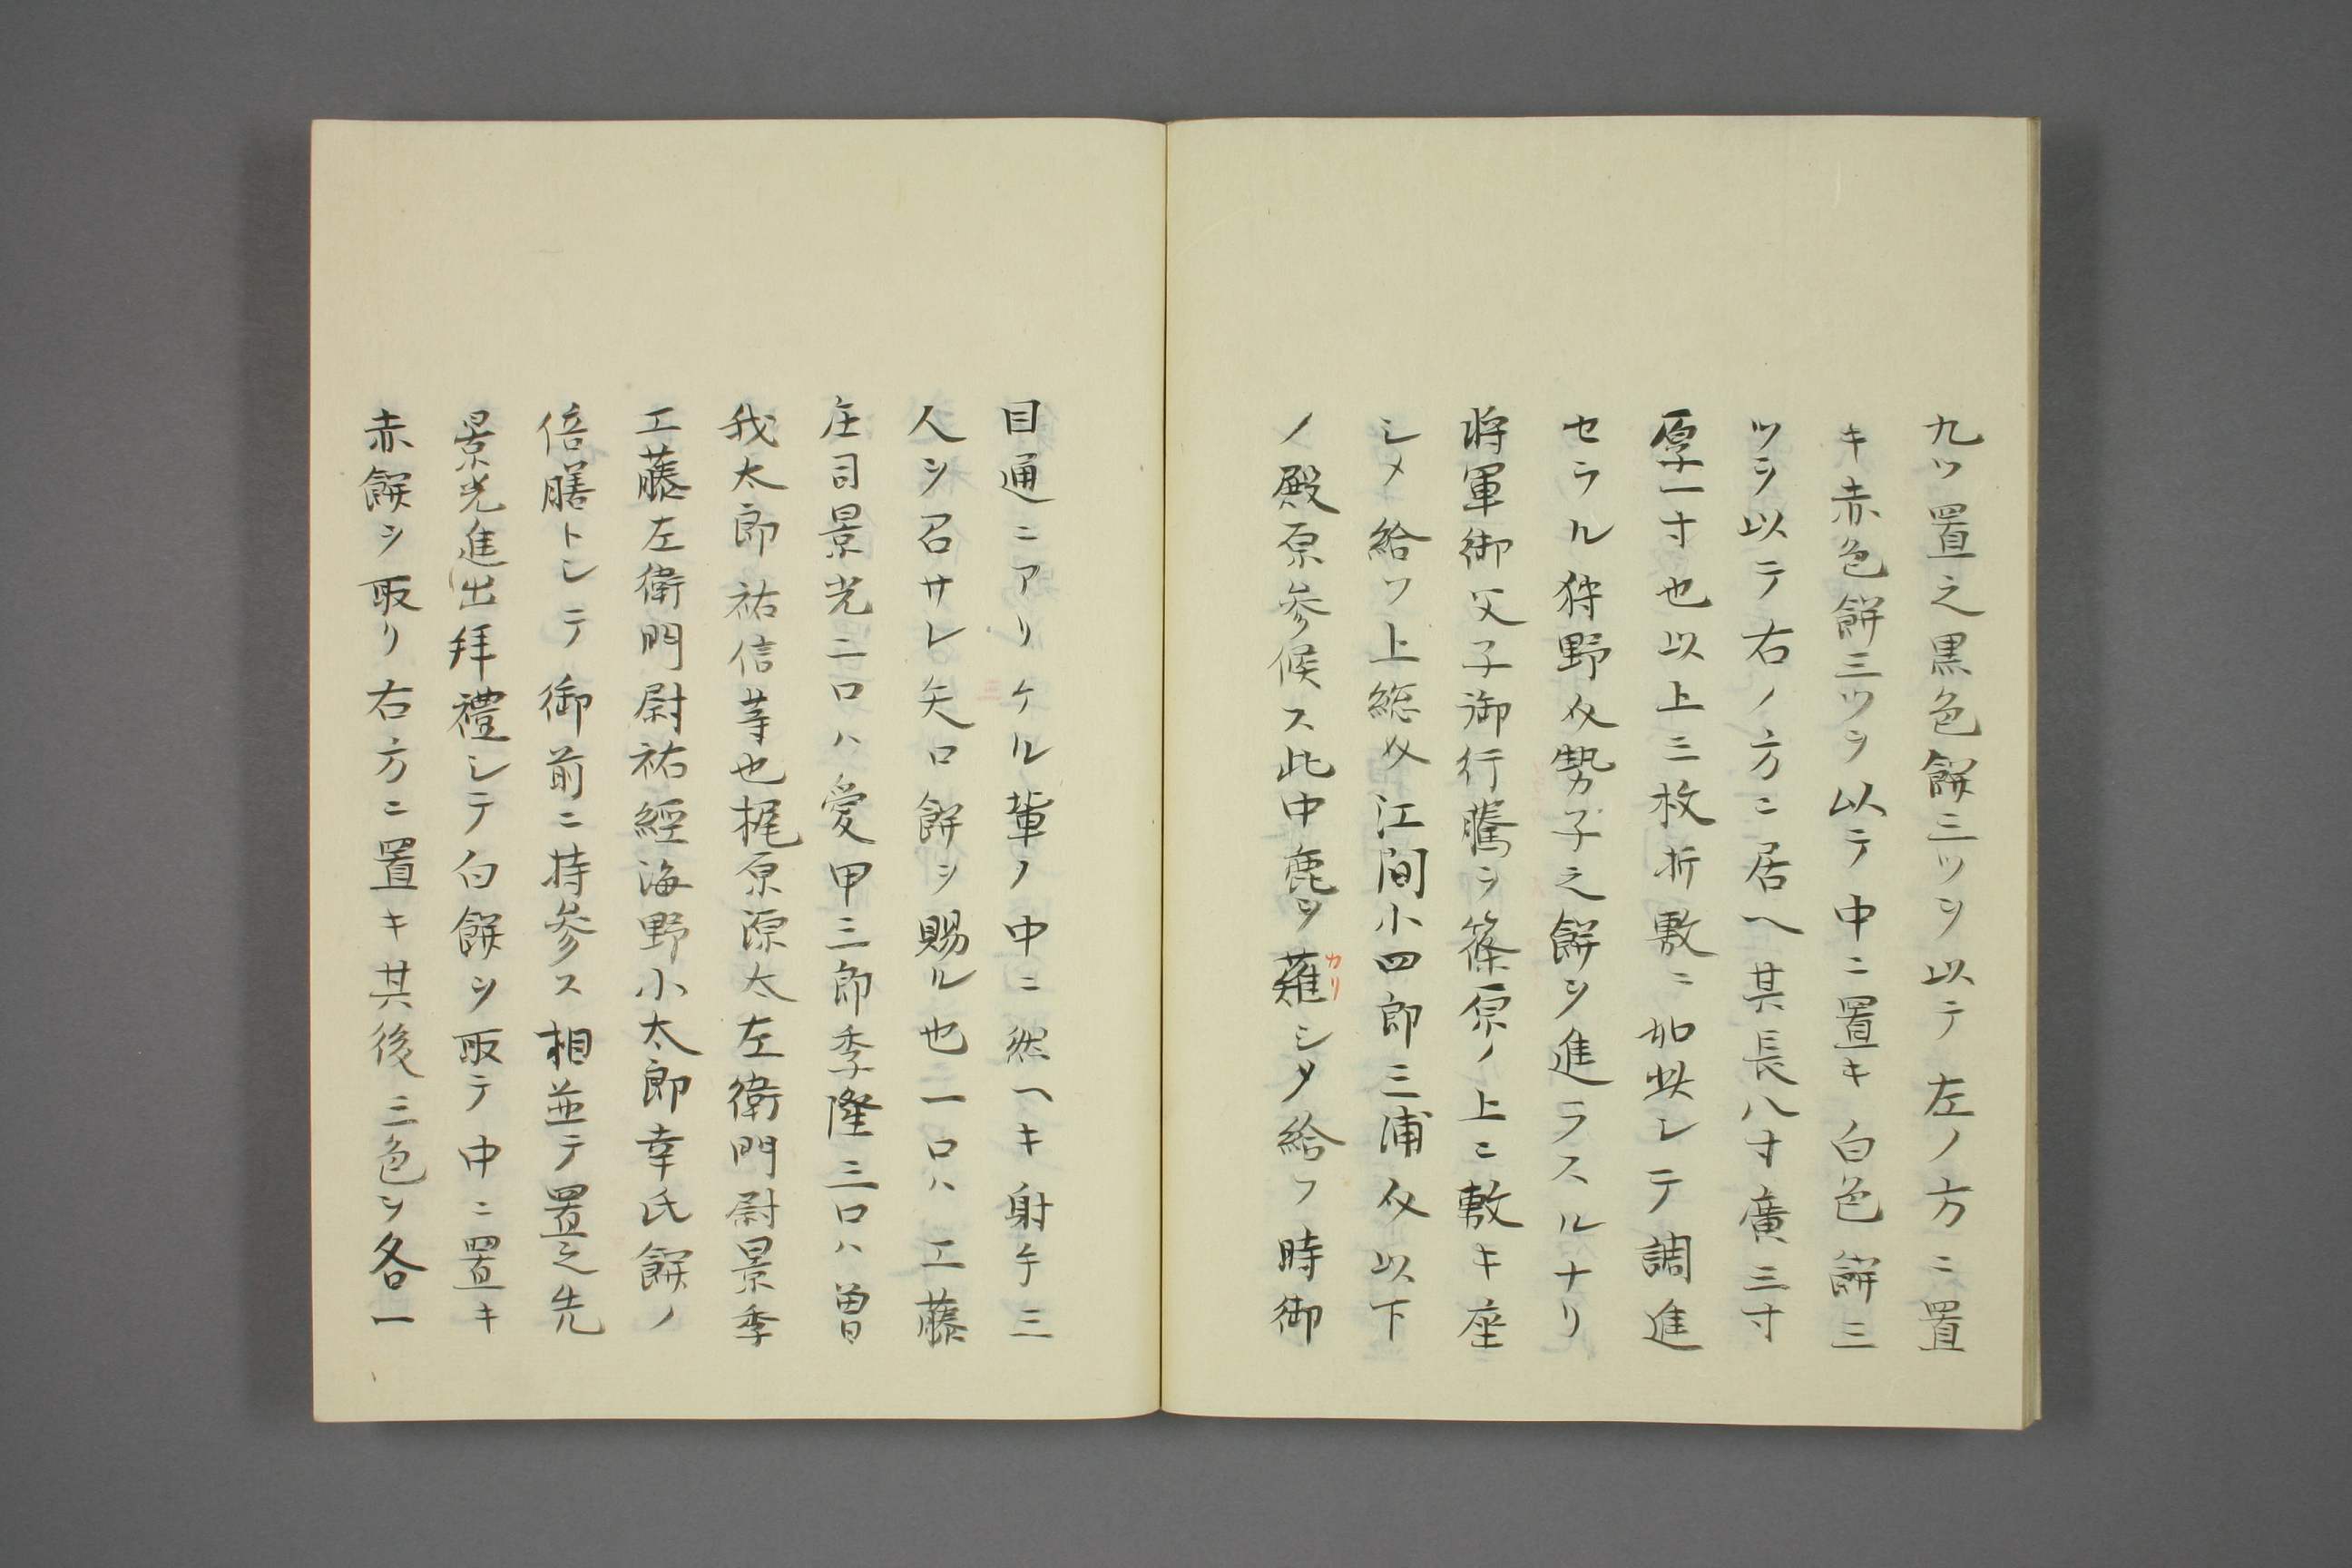 九ツ置之黒色餅三ツヲ以テ左ノ方ニ置
キ赤色餅三ツヲ以テ中ニ置キ白色餅三
ツヲ以テ右ノ方ニ居ヘ其長八寸廣三寸
厚一寸也以上三枚折敷ニ如此シテ調進
セラル狩野介勢子之餅ヲ進ラスルナリ
将軍御父子御行騰ヲ篠原ノ上ニ敷キ座
シメ給フ上総介江間小四郎三浦介以下
ノ殿原参候ス此中鹿ヲ蘿シメ給フ時御
カリ
目通ニアリケル輩ノ中ニ然ヘキ射手三
人ヲ召サレ矢口餅ヲ賜ル也一口ハ工藤
庄司景光二口ハ愛甲三郎季隆三口ハ曽
我太郎祐信等也梶原源太左衛門尉景季
工藤左衛門尉祐經海野小太郎幸氏餅ノ
倍膳トシテ御前ニ持参ス相並テ置之先
景光進出拜禮シテ白餅ヲ取テ中ニ置キ
赤餅ヲ取リ右方ニ置キ其後三色ヲ各一